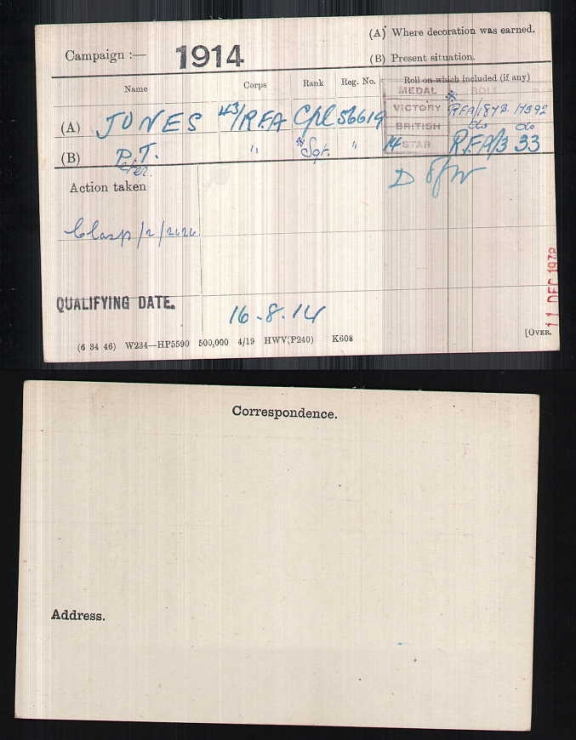 (A) Where decoration was earned.
Campaign :— 1914
(B) Present situation.
Name Corps Rank Reg. No. Roll on which included (if any)
MEDAL ROLL
VICTORY RFA/187B 17592
(A) JONES 43/RFA Cpl 56619
BRITISH do do
(B) P.T. " Sgt. " 14 STAR RFA/3 33
Action taken D of W
Clasp/2/2626
QUALIFYING DATE. 16.8.14
11 DEC
(6 34 46) W234—HP5590 500,000 4/19 HWV(P240) K608 [OVER.
Correspondence.
Address.